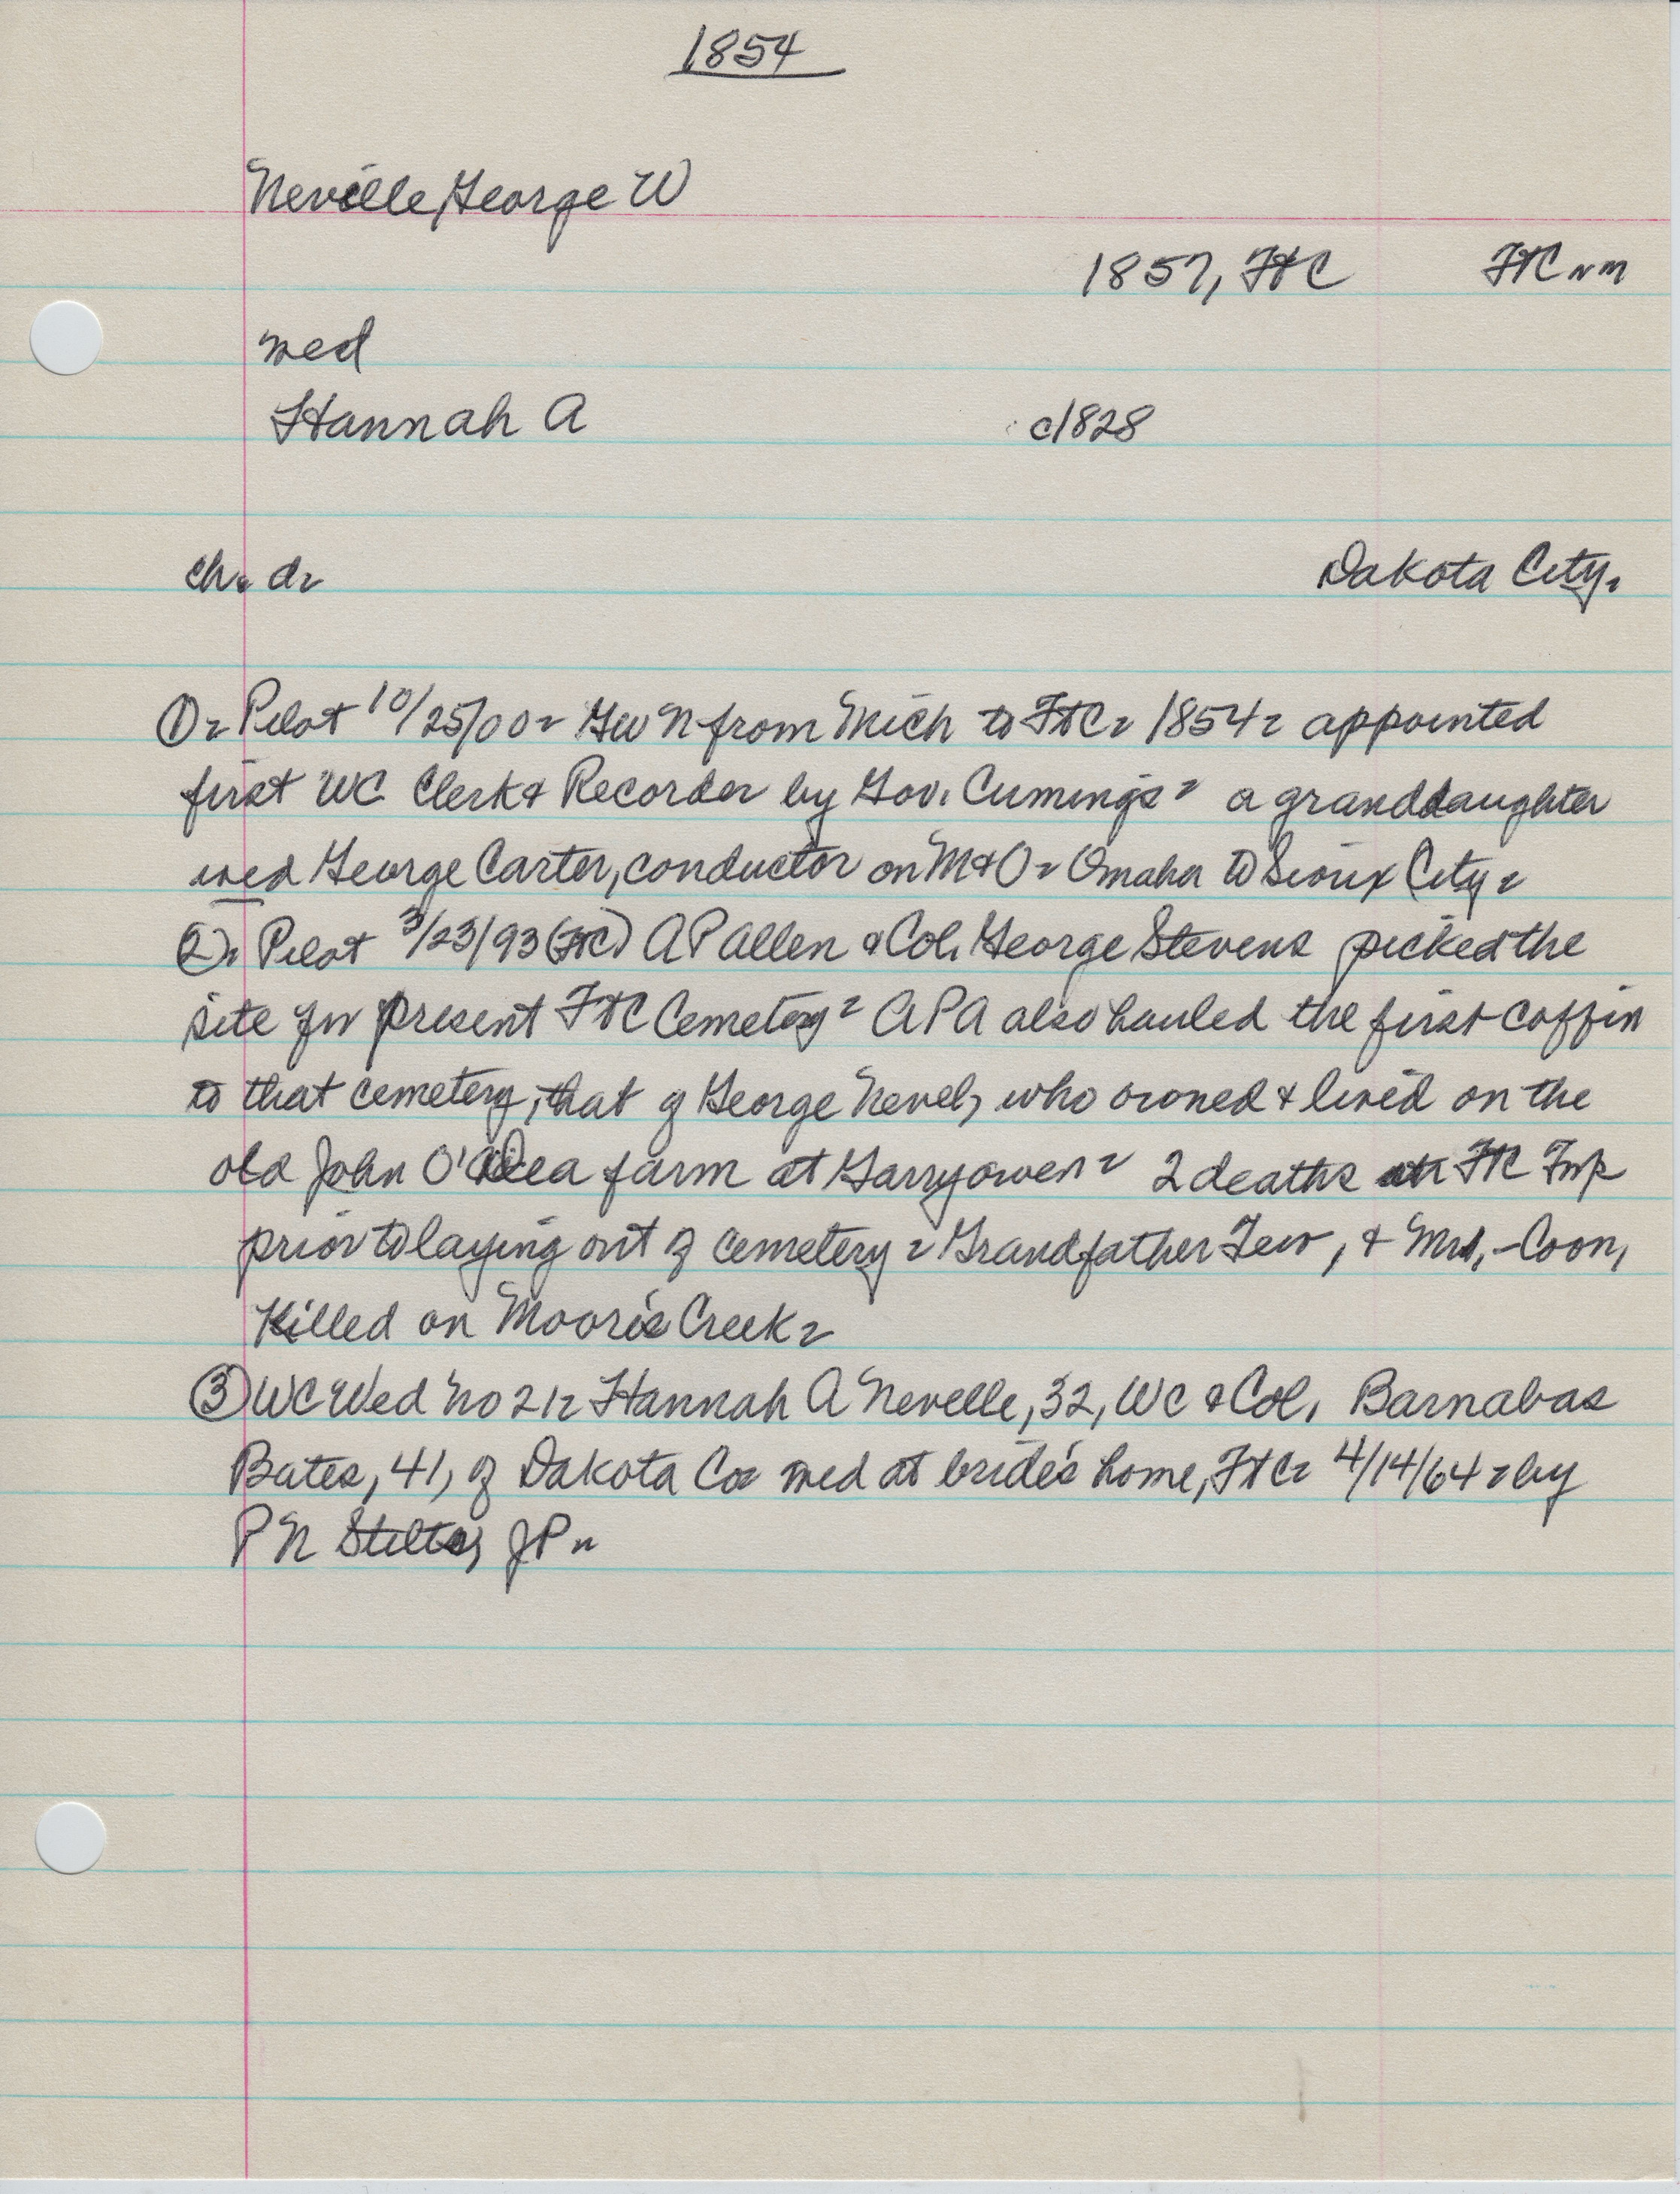 1854
Neville, George W
1857, FtC FtC nm
wed
Hannah A c1828
ch. d-
Dakota City.
①- Pilot 10/25/00- GWN from Mich to FtC- 1854- appointed
first WC Clerk & Recorder by Gov. Cumings- a granddaughter
wed George Carter, conductor on M&O- Omaha to Sioux City-
②- Pilot 3/23/93 (FtC) A P Allen & Col. George Stevens picked the
site for present FtC Cemetery- APA also hauled the first coffin
to that cemetery, that of George Nevel, who owned & lived on the
old John O'Dea farm at Garryowen- 2 deaths in FtC Twp
prior to laying out of cemetery- Grandfather Tew, & Mrs. -Coon,
Killed on Moore's Creek-
③ WC Wed No 21- Hannah A Nevelle, 32, WC & Col. Barnabas
Bates, 41, of Dakota Co- wed at bride's home, FtC- 4/14/64- by
P N Stilts, JP-